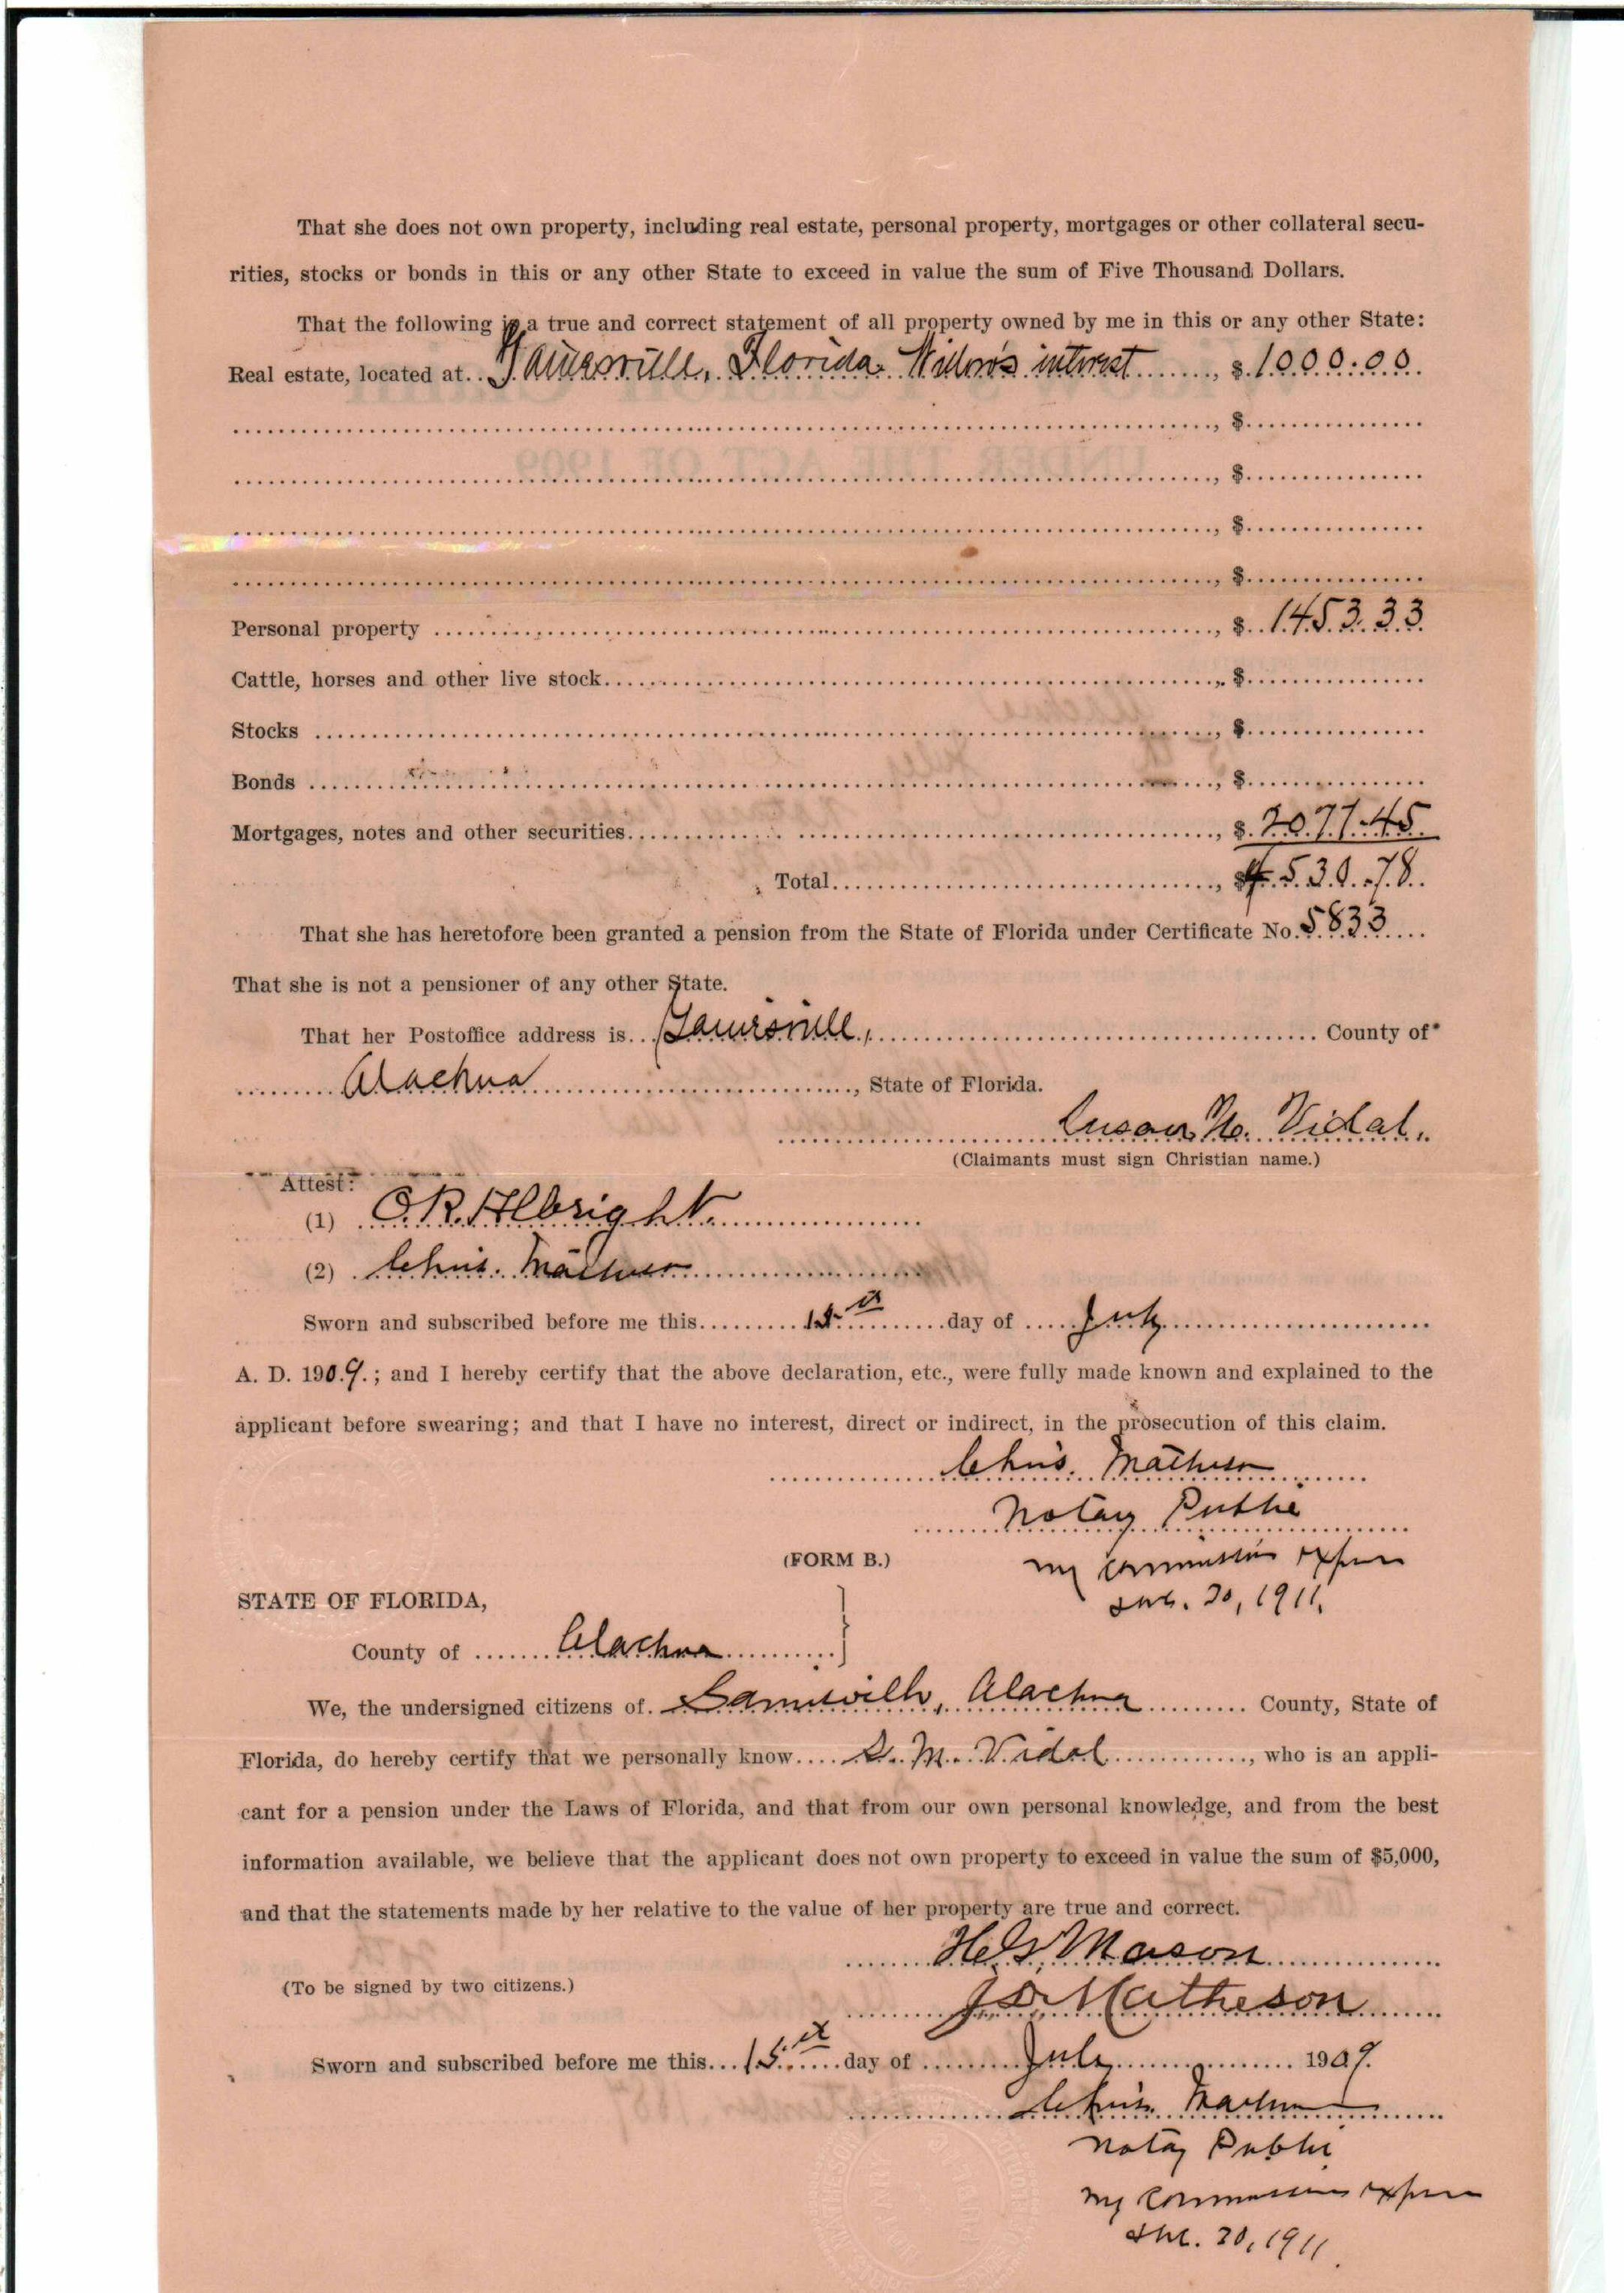 That she does not own property, including real estate, personal property, mortgages or other collateral secu-
rities, stocks or bonds in this or any other State to exceed in value the sum of Five Thousand Dollars.
That the following is a true and correct statement of all property owned by me in this or any other State:
Real estate, located at.. Gainesville, Florida. Widow's interest ......, $ 1000.00
......, $......
......, $......
......, $......
......, $......
Personal property ......, $ 1453.33
Cattle, horses and other live stock......, $......
Stocks ......, $......
Bonds ......, $......
Mortgages, notes and other securities......, $ 2077.45
Total......, $ 4530.78
That she has heretofore been granted a pension from the State of Florida under Certificate No. 5833
That she is not a pensioner of any other State.
That her Postoffice address is... Gainesville, ...... County of
Alachua ......, State of Florida.
Susan M. Vidal.
(Claimants must sign Christian name.)
Attest:
(1) O.R. Albright.
(2) Chris. Matheson
Sworn and subscribed before me this...... 15th ......day of ...... July
A. D. 1909.; and I hereby certify that the above declaration, etc., were fully made known and explained to the
applicant before swearing; and that I have no interest, direct or indirect, in the prosecution of this claim.
Chris. Matheson
Notary Public
(FORM B.)
my commission expires
20, 1911.
STATE OF FLORIDA,
County of ...... Alachua
We, the undersigned citizens of. Gainesville, Alachua ...... County, State of
Florida, do hereby certify that we personally know.... S. M. Vidal ......, who is an appli-
cant for a pension under the Laws of Florida, and that from our own personal knowledge, and from the best
information available, we believe that the applicant does not own property to exceed in value the sum of $5,000,
and that the statements made by her relative to the value of her property are true and correct.
H.G. Mason
(To be signed by two citizens.)
J D Matheson
Sworn and subscribed before me this... 15th ....day of ...... July ...... 1909.
Chris. Matheson
Notary Public
my commission expires
20, 1911